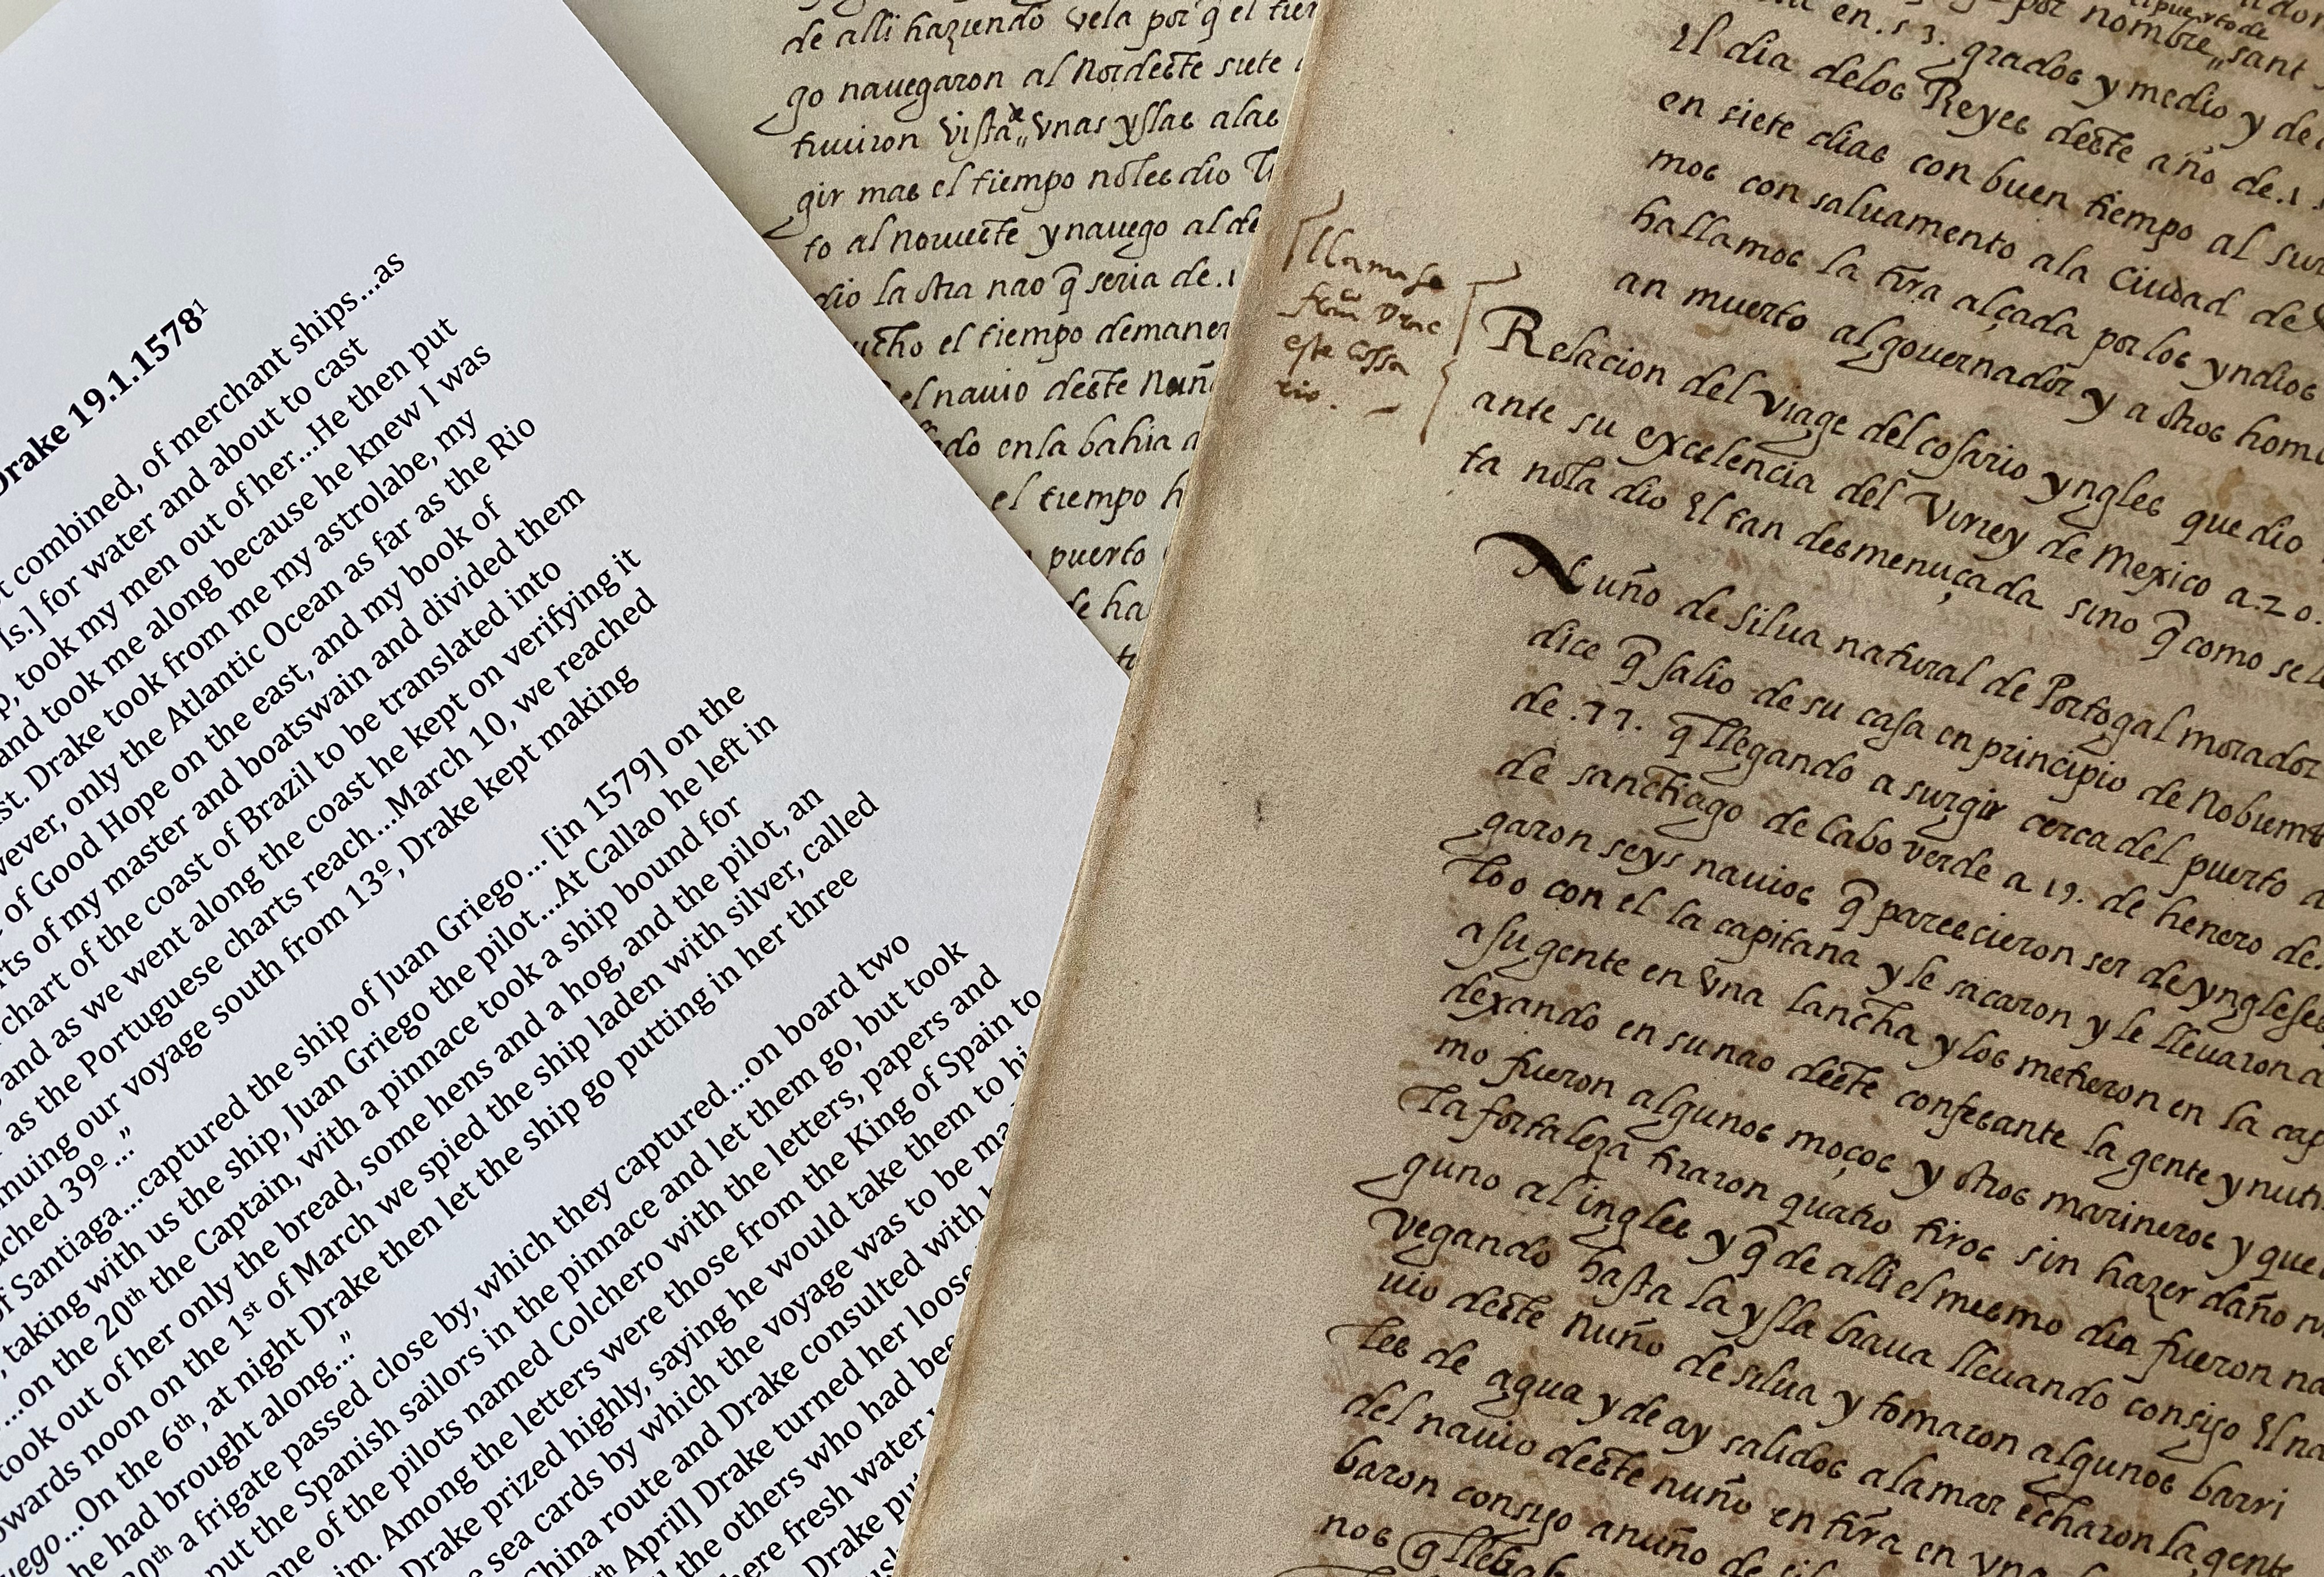 Drake 19.1.1578¹
combined, of merchant ships...as
[s.] for water and about to cast
took my men out of her...He then put
and took me along because he knew I was
st. Drake took from me my astrolabe, my
only the Atlantic Ocean as far as the Rio
of Good Hope on the east, and my book of
of my master and boatswain and divided them
chart of the coast of Brazil to be translated into
and as we went along the coast he kept on verifying it
as the Portuguese charts reach...March 10, we reached
our voyage south from 13º, Drake kept making
39º..."
of Santiaga...captured the ship of Juan Griego... [in 1579] on the
taking with us the ship, Juan Griego the pilot...At Callao he left in
...on the 20th the Captain, with a pinnace took a ship bound for
took out of her only the bread, some hens and a hog, and the pilot, an
noon on the 1st of March we spied the ship laden with silver, called
...On the 6th, at night Drake then let the ship go putting in her three
he had brought along..."
a frigate passed close by, which they captured...on board two
put the Spanish sailors in the pinnace and let them go, but took
one of the pilots named Colchero with the letters, papers and
Among the letters were those from the King of Spain to
Drake prized highly, saying he would take them to
sea cards by which the voyage was to be
China route and Drake consulted with
April] Drake turned her loose
the others who had
fresh water
Drake
de alli haziendo vela por q̃ el
go nauegaron al Nordeste siete
tuuiron vista de vnas yslas alas
gir mas el tiempo no les dio
to al norueste y nauego al
dio la otra nao q̃ seria de .1
el tiempo
el nauio deste Nuñ
en la bahia
el tiempo h
puerto
ha
llamase
franco Drac
este cossa
rio.
en .53. grados y medio y de
por nombre sant
el puerto de
El dia delos Reyes deste año de .1
en siete dias con buen tiempo al sur
mos con saluamento ala Ciudad de
hallamos la tirra alçada por los yndios
an muerto al gouernador y a otros hom
Relacion del viage del cosario yngles que dio
ante su excelencia del Virrey de Mexico a .20.
ta nola dio El tan desmenuçada sino q̃ como se
Nuño de silua natural de Portogal morador
dice q̃ salio de su casa en principio de Nobiemb
de .77. q̃ llegando a surgir cerca del puerto
de sanctiago de Cabo verde a 19. de henero de
garon seys nauios q̃ parescieron ser de yngleses
con el la capitana y le sacaron y le lleuaron a
a su gente en vna lancha y los metieron en la cap
dexando en su nao deste confesante la gente y
mo fueron algunos moços y otros marineros y que
la fortaleza tiraron quatro tiros sin hazer daño
guno al ingles y q̃ de alli el mesmo dia fueron na
vegando hasta la ysla braua lleuando consigo El na
uio deste Nuño de silua y tomaron algunos barri
les de agua y de ay salidos alamar echaron la gente
del nauio deste nuño en tirra en vna
baron consigo a nuño de sil
nos q̃ lleuab